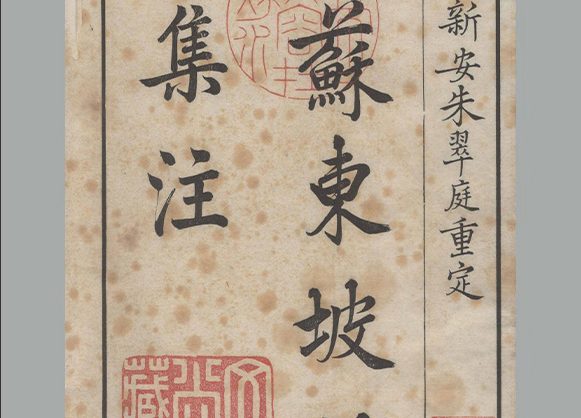 新安朱翠庭重定
蘇東坡
集注